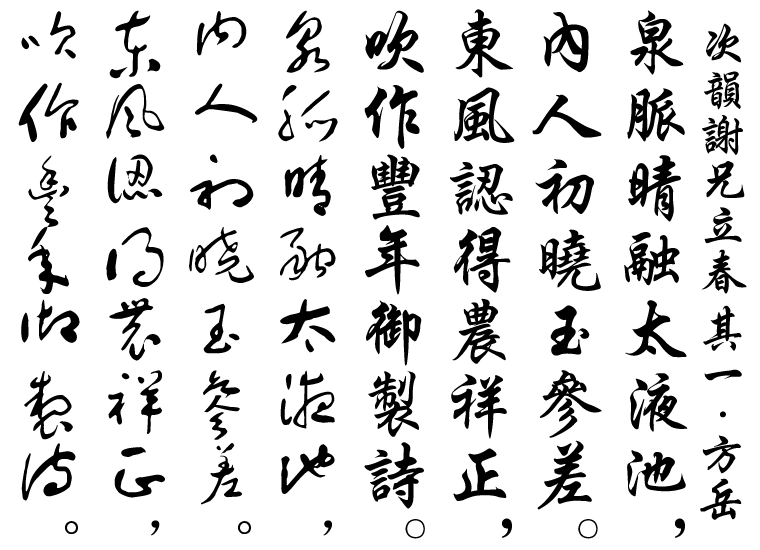 次韻謝兄立春其一·方岳
泉脈晴融太液池，
內人初曉玉參差。
東風認得農祥正，
吹作豐年御製詩。
泉脈晴融太液池，
內人初曉玉參差。
東風認得農祥正，
吹作豐年御製詩。